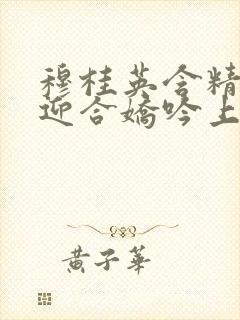 穆桂英含精
迎合嬌吟上
黃子華